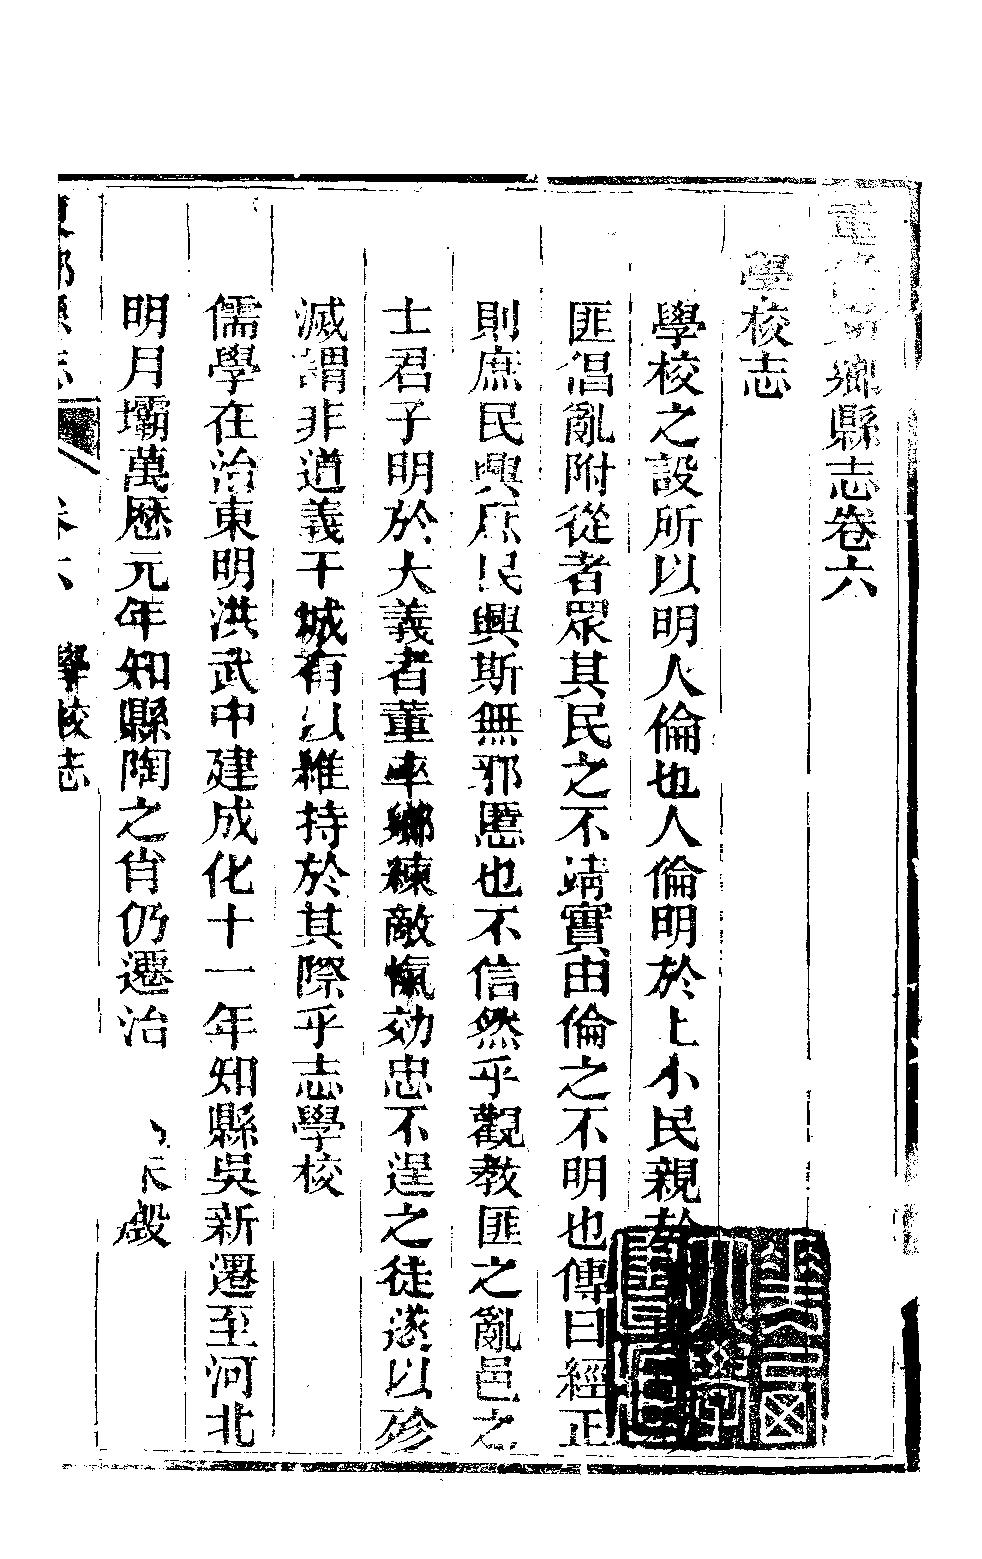 重修東鄉縣志卷六
學校志
學校之設所以明人倫也人倫明於上小民親於
匪倡亂附從者眾其民之不靖實由倫之不明也傳曰經正
則庶民興庶民興斯無邪慝也不信然乎觀教匪之亂邑之
士君子明於大義者董率鄉練敵愾効忠不逞之徒遂以殄
滅謂非道義干城有以維持於其際乎志學校
儒學在治東明洪武中建成化十一年知縣吳新遷至河北
明月壩萬厯元年知縣陶之肖仍遷治 末殿
東鄉縣志 卷六 學校志